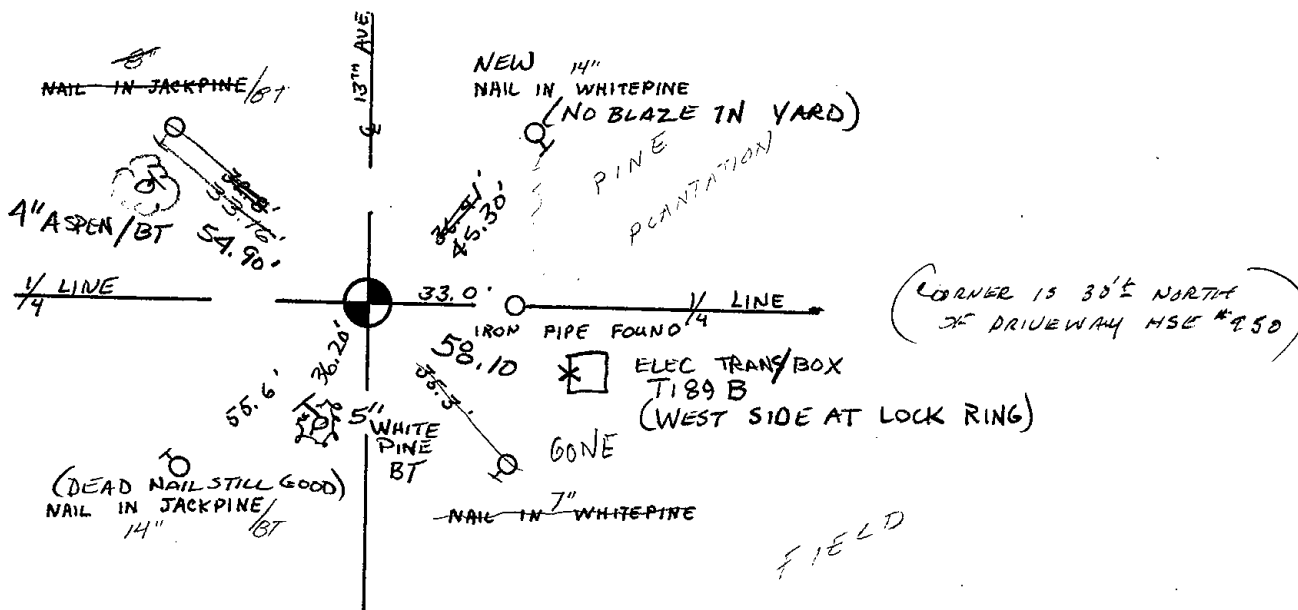 13TH AVE.
℄
8"
NAIL IN JACKPINE/BT
NEW 14"
NAIL IN WHITEPINE
(NO BLAZE IN YARD)
PINE
PLANTATION
33.16'
4" ASPEN/BT
54.90'
36.91'
45.30'
1/4 LINE
33.0'
1/4 LINE
IRON PIPE FOUND
(CORNER IS 30'± NORTH
OF DRIVEWAY HSE #950)
58.10
ELEC TRANS/BOX
T189 B
(WEST SIDE AT LOCK RING)
36.20'
55.6'
35.3'
5" WHITE
PINE
BT
GONE
(DEAD NAIL STILL GOOD)
NAIL IN JACKPINE/
14" BT
7"
NAIL IN WHITEPINE
FIELD